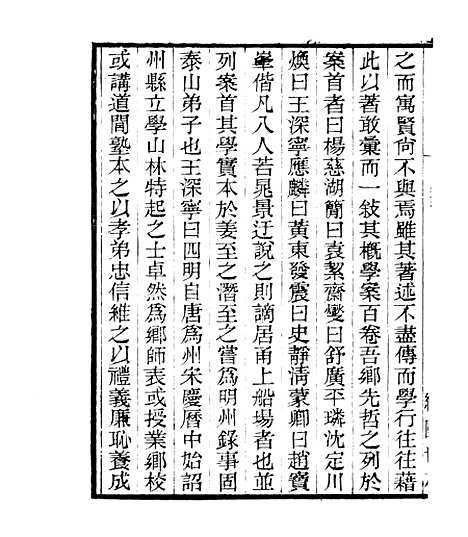 之而寓賢尙不與焉雖其著述不盡傳而學行往往藉
此以著敢彙而一敍其概學案百卷吾鄉先哲之列於
案首者曰楊慈湖簡曰袁絜齋燮曰舒廣平璘沈定川
煥曰王深寧應麟曰黃東發震曰史靜清蒙卿曰趙寶
峯偕凡八人若晁景迂說之則謫居甬上船場者也並
列案首其學實本於姜至之潛至之嘗爲明州錄事固
泰山弟子也王深寧曰四明自唐爲州宋慶曆中始詔
州縣立學山林特起之士卓然爲鄉師表或授業鄉校
或講道閭塾本之以孝弟忠信維之以禮義廉恥養成